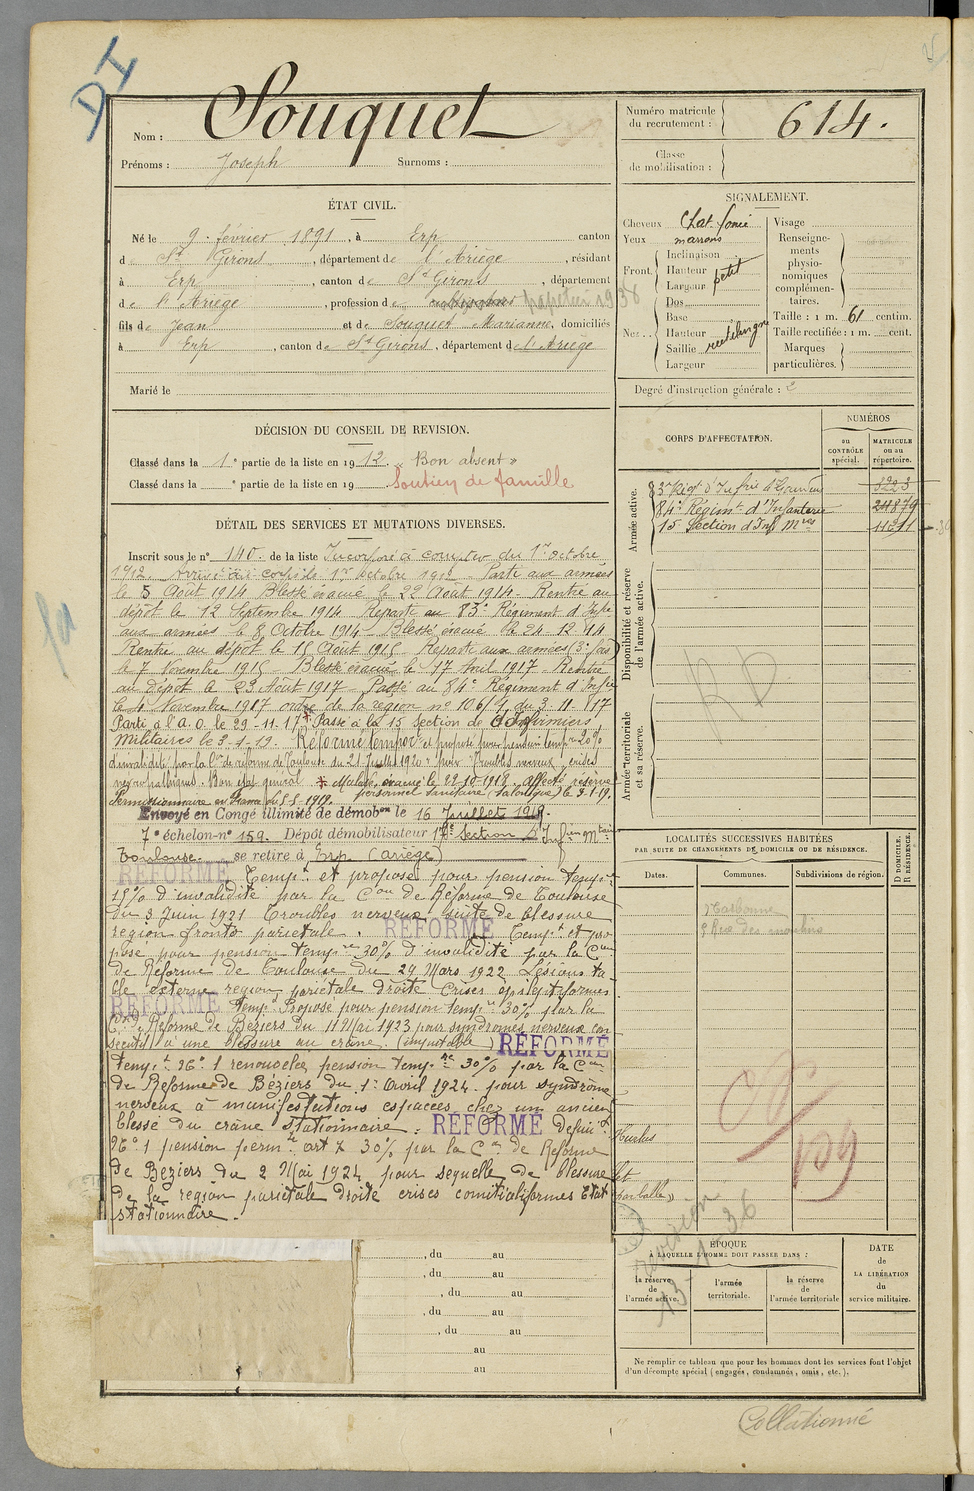 DI
Nom : Souquet
Prénoms : Joseph Surnoms :
Numéro matricule
du recrutement : 614.
Classe
de mobilisation :
ÉTAT CIVIL.
Né le 9 février 1891, à Erp canton
de St Girons, département de l'Ariège, résidant
à Erp, canton de St Girons, département
de l'Ariège, profession de papetier 1938
fils de Jean et de Souquet Marianne, domiciliés
à Erp, canton de St Girons, département de l'Ariège
Marié le
SIGNALEMENT.
Cheveux Chat. foncé
Yeux marrons
Front. Inclinaison
Hauteur
Largeur petit
Nez . . Dos
Base
Hauteur
Saillie rectiligne
Largeur
Visage
Renseigne-
ments
physio-
nomiques
complémen-
taires.
Taille : 1 m. 61 centim.
Taille rectifiée : 1 m. cent.
Marques
particulières.
Degré d'instruction générale : 2
DÉCISION DU CONSEIL DE REVISION.
Classé dans la 1e partie de la liste en 1912. « Bon absent »
Classé dans la e partie de la liste en 19 Soutien de famille
DÉTAIL DES SERVICES ET MUTATIONS DIVERSES.
Inscrit sous le no 140. de la liste Incorporé à compter du 1er octobre
1912. Arrivé au corps le 1er octobre 1912. Parti aux armées
le 5 Août 1914 Blessé évacué le 22 Août 1914. Rentré au
dépôt le 12 Septembre 1914 Reparti au 83e Régiment d'Infie
aux armées le 8 Octobre 1914 Blessé évacué le 24-12-14
Rentré au dépôt le 15 Août 1915 Reparti aux armées (3e fois
le 7 Novembre 1915 Blessé évacué le 17 Avril 1917 Rentré
au Dépôt le 23 Août 1917 Passé au 84e Régiment d'Infie
le 4 Novembre 1917 ordre de la région no 106/1 du 3-11-17
Parti à l'A.O. le 29-11-17 * Passé à la 15 Section de d'Infirmiers
Militaires le 3-1-19. Réformé tempore et proposé pour pension tempre 20%
d'invalidité par la Con de réforme de Toulouse du 21 Juillet 1920 pour Troubles nerveux, crises
névropathiques. Bon état général * Malade, évacué le 22-10-1918. Affecté réserve
personnel sanitaire (Salonique) le 3-1-19.
Permissionnaire en France du 5-5-1919.
Envoyé en Congé illimité de démobon le 16 Juillet 1919.
7e échelon-no 159. Dépôt démobilisateur 17e Section d'Infiers Mres
Toulouse. se retire à Erp (Ariège)
RÉFORMÉ Tempt et proposé pour pension tempre
15% d'invalidité par la Con de Réforme de Toulouse
du 3 Juin 1921 Troubles nerveux suite de blessure
région fronto pariétale. RÉFORMÉ Tempt et pro
posé pour pension tempre 30% d'invalidité par la Con
de Réforme de Toulouse du 29 Mars 1922 Lésions ta
ble externe région pariétale droite Crises épileptiformes
RÉFORMÉ Tempt Proposé pour pension tempre 30% par la
Con de Réforme de Béziers du 11 Mai 1923 pour syndromes nerveux con
sécutif à une blessure au crâne. (imputable) RÉFORMÉ
tempt No 1 renouvelée pension tempre 30% par la Con
de Réforme de Béziers du 1er Avril 1924 pour syndrôme
nerveux à manifestations espacées chez un ancien
blessé du crâne stationnaire. RÉFORMÉ défint
No 1 pension permte art 7 30% par la Con de Réforme
de Béziers du 2 Mai 1924 pour séquelle de blessure
de la région pariétale droite crises comitialformes Etat
stationnaire.
, du au
, du au
, du au
, du au
, du au
au
au
CORPS D'AFFECTATION.
NUMÉROS
au
CONTRÔLE
spécial.
MATRICULE
ou au
répertoire.
Armée active.
83e Régt d'Infie 3223
84e Régimt d'Infanterie 24879
15 Section d'Inf Mres 11211
Disponibilité et réserve
de l'armée active.
RD
Armée territoriale
et sa réserve.
LOCALITÉS SUCCESSIVES HABITÉES
PAR SUITE DE CHANGEMENTS DE DOMICILE OU DE RÉSIDENCE.
Dates.
Communes.
Subdivisions de région.
D DOMICILE.
R RÉSIDENCE.
Narbonne
Rue des moulins
109
révision
13-1-36
ÉPOQUE
À LAQUELLE L'HOMME DOIT PASSER DANS :
la réserve
de
l'armée active.
l'armée
territoriale.
la réserve
de
l'armée territoriale
DATE
de
LA LIBÉRATION
du
service militaire.
Ne remplir ce tableau que pour les hommes dont les services font l'objet
d'un décompte spécial (engagés, condamnés, omis, etc.).
Collationné